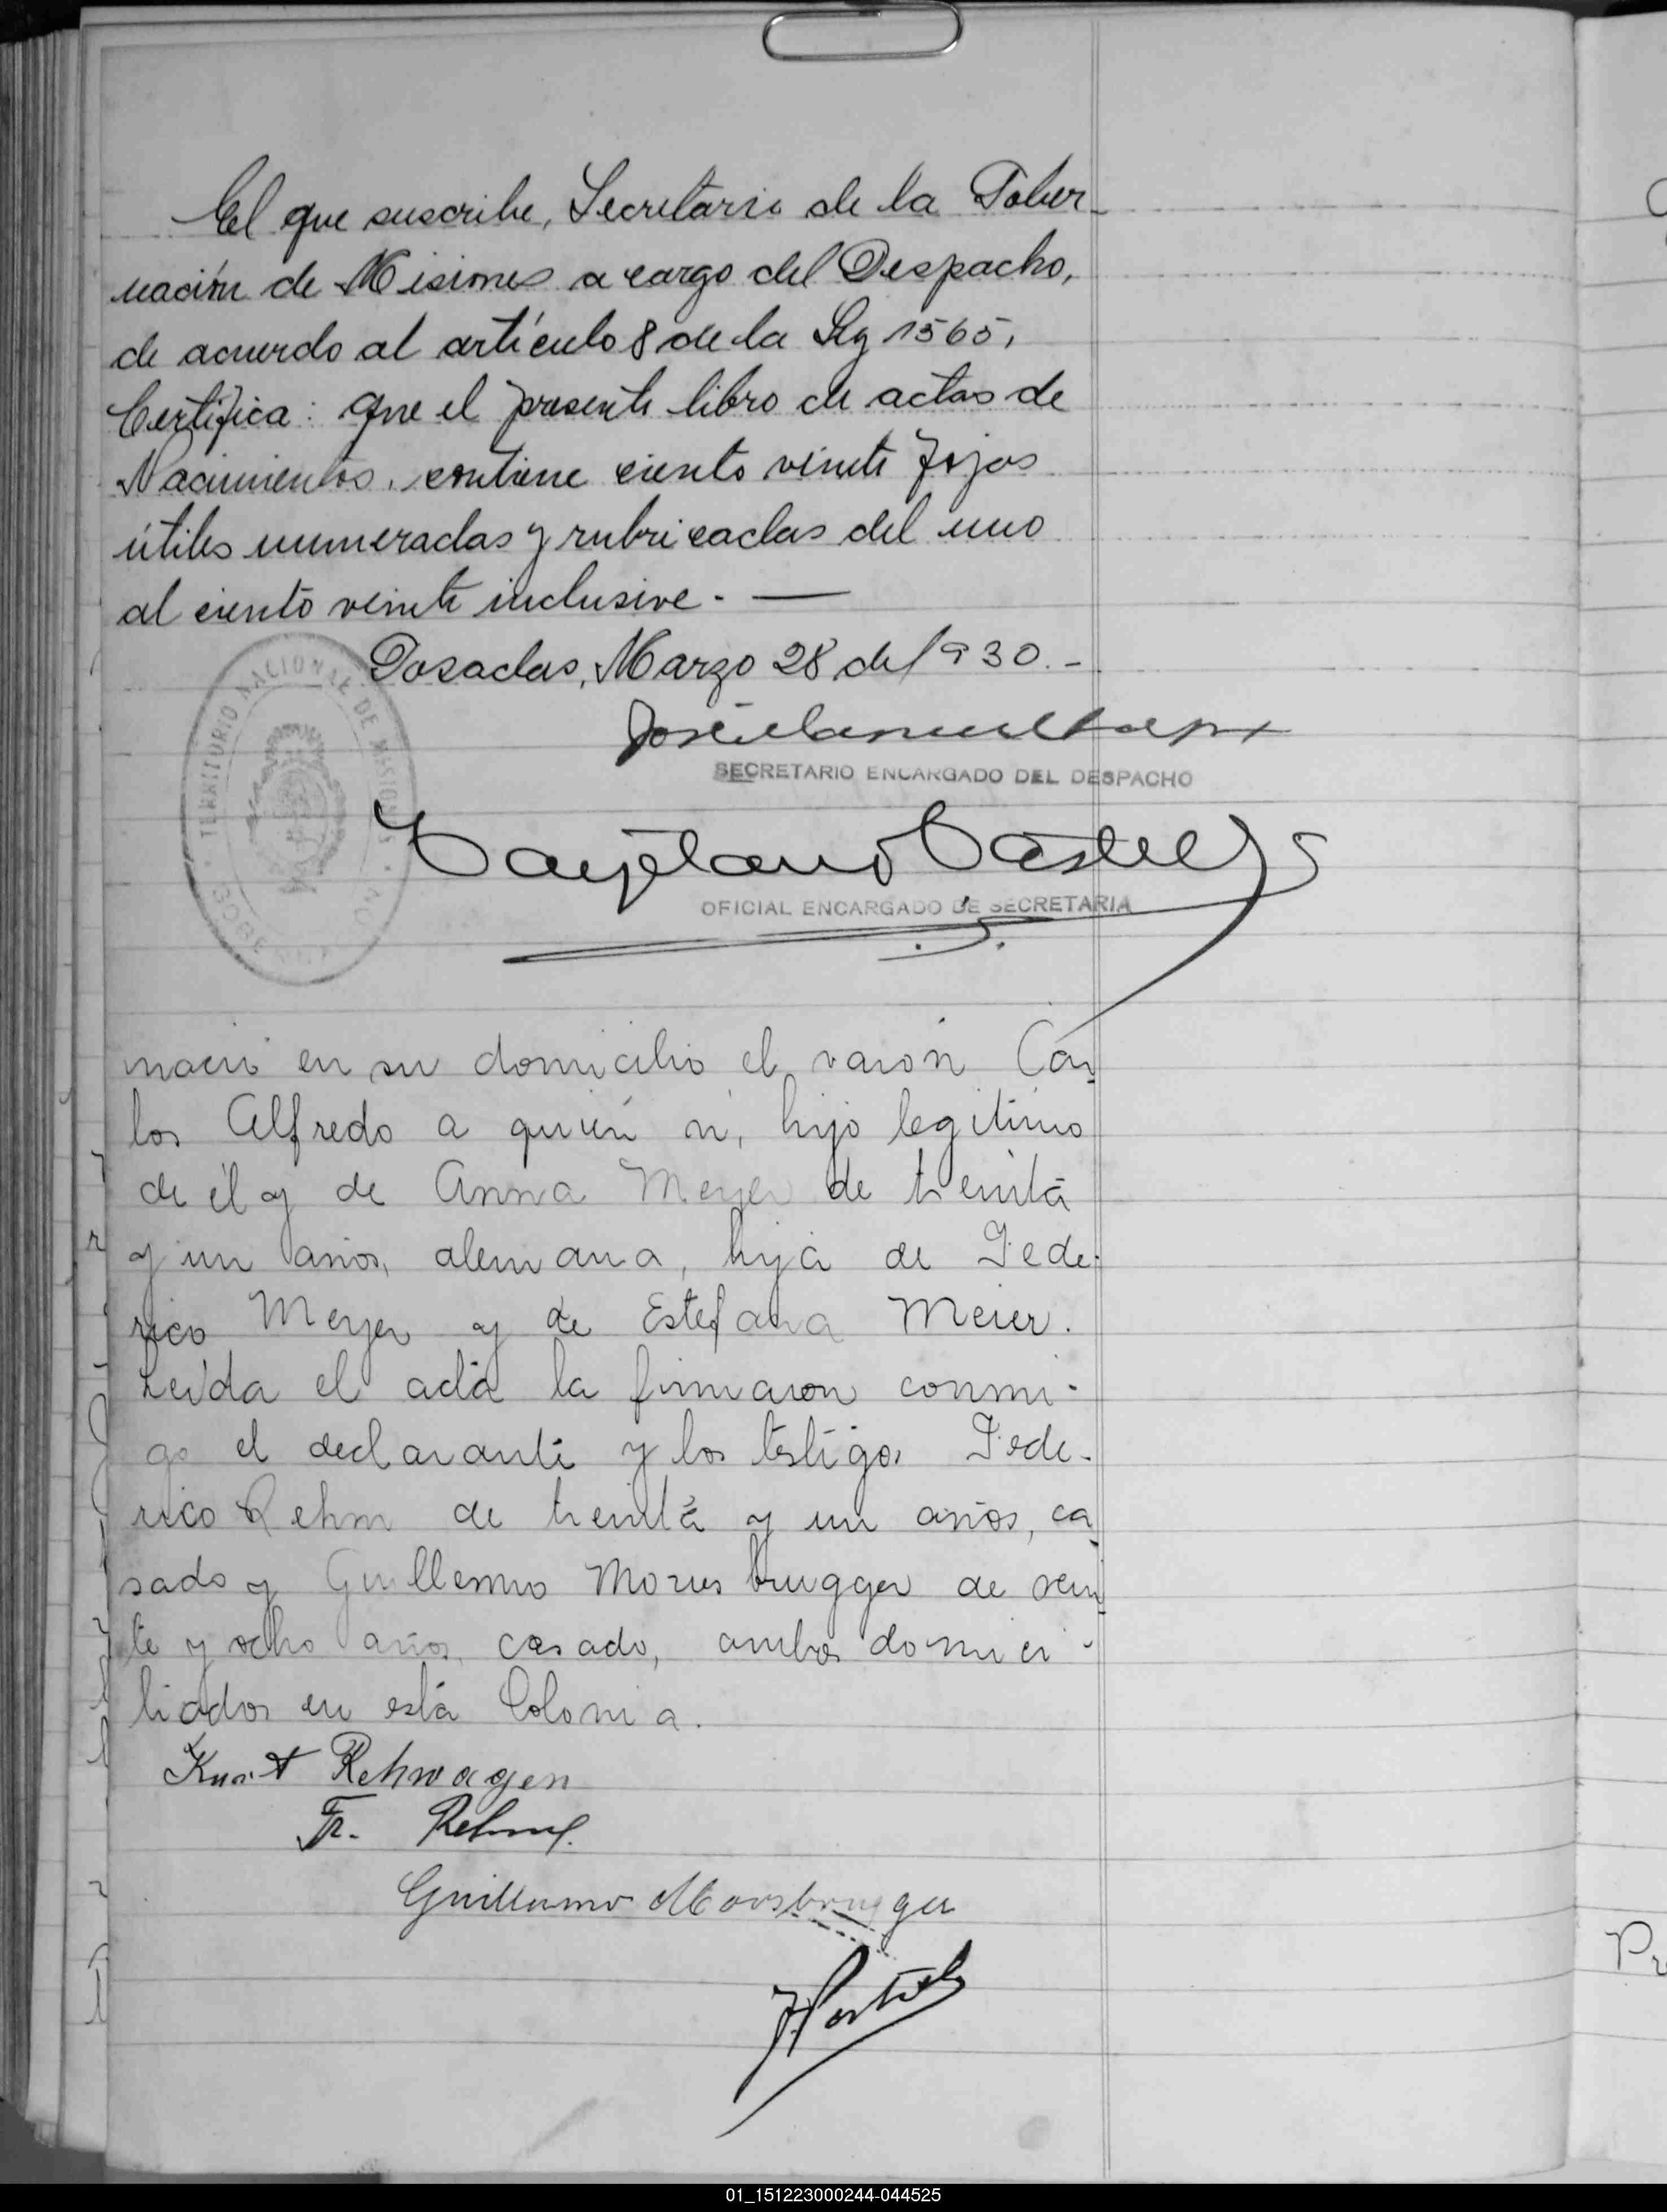 El que suscribe, Secretario de la Gober-
nación de Misiones a cargo del Despacho,
de acuerdo al artículo 8 de la Ley 1565,
Certifica: que el presente libro de actas de
Nacimientos, contiene ciento veinte fojas
útiles numeradas y rubricadas del uno
al ciento veinte inclusive. —
Posadas, Marzo 28 de 1930.-
TERRITORIO NACIONAL DE MISIONES
José Manuel
SECRETARIO ENCARGADO DEL DESPACHO
Cayetano Castells
OFICIAL ENCARGADO DE SECRETARIA
nació en su domicilio el varón Car
los Alfredo a quién ví, hijo legítimo
de él y de Anna Meyer de treinta
y un años, alemana, hija de Fede-
rico Meyer y de Estefana Meier.
Leída el acta la firmaron conmi-
go el declarante y los testigos Fede-
rico Rehm de treinta y un años, ca
sado y Guillermo Moosbrugger de vein
te y ocho años, casado, ambos domici-
liados en esta Colonia.
Kurt Rehwagen
Fr. Rehm
Guillermo Moosbrugger
Pr
01_151223000244-044525